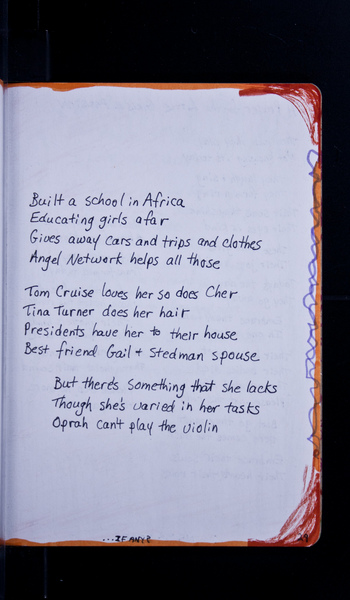 Built a school in Africa
Educating girls afar
Gives away cars and trips and clothes
Angel Network helps all those
Tom Cruise loves her so does Cher
Tina Turner does her hair
Presidents have her to their house
Best friend Gail + Stedman spouse
But there's something that she lacks
Though she's varied in her tasks
Oprah can't play the violin
...IF ANY?